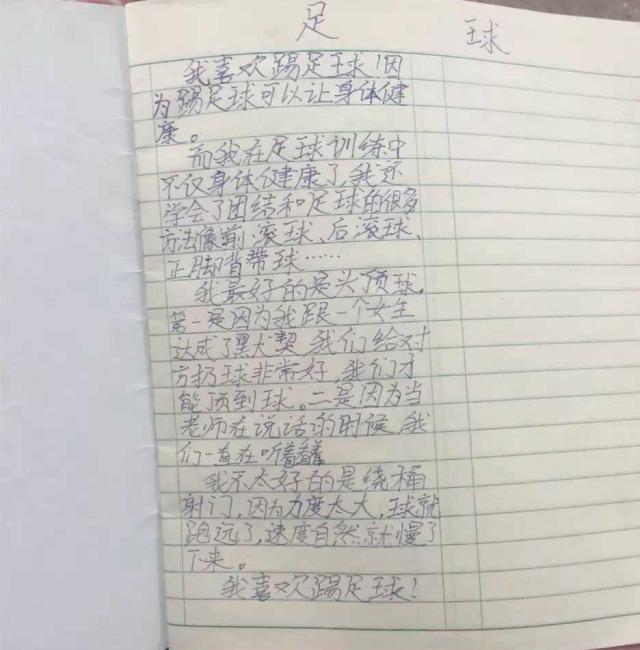 足 球
我喜欢踢足球！因
为踢足球可以让身体健
康。
而我在足球训练中
不仅身体健康了，我还
学会了团结和足球的很多
方法像前滚球、后滚球、
正脚背带球……
我最好的是头顶球。
第一是因为我跟一个女生
达成了默契，我们给对
方扔球非常好，我们才
能顶到球。二是因为当
老师在说话的时候，我
们一直在听着
我不太好的是绕桶
射门，因为力度太大，球就
跑远了，速度自然就慢了
下来。
我喜欢踢足球！